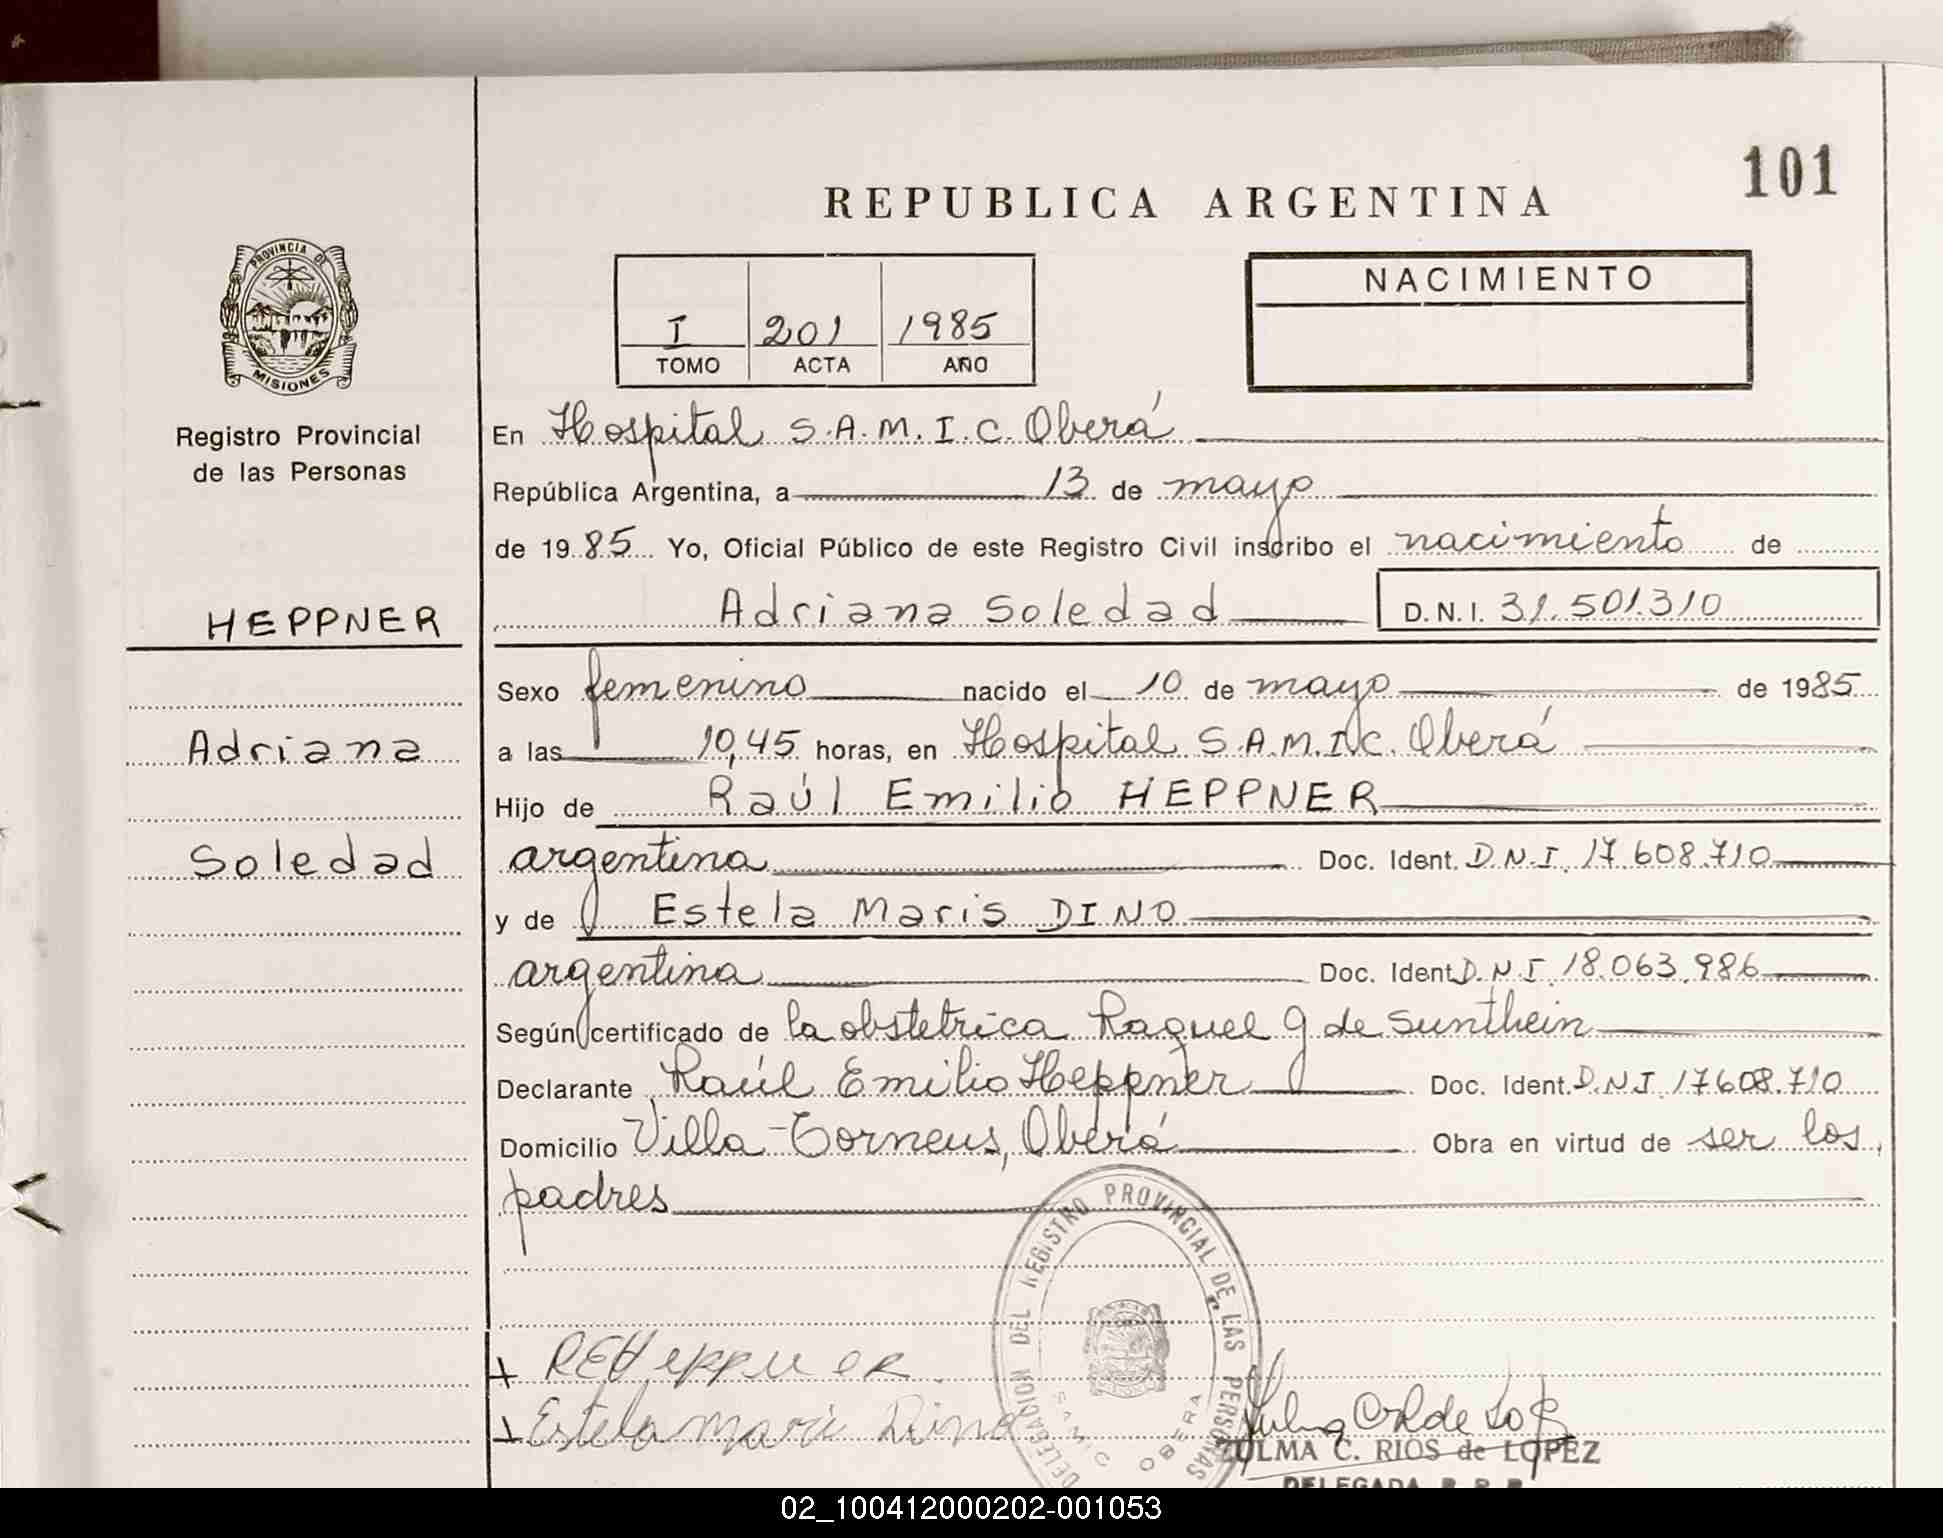 101
REPUBLICA ARGENTINA
PROVINCIA DE
MISIONES
Registro Provincial
de las Personas
NACIMIENTO
I 201 1985
TOMO ACTA AÑO
En Hospital S.A.M.I.C. Oberá
República Argentina, a 13 de mayo
de 1985 Yo, Oficial Público de este Registro Civil inscribo el nacimiento de
HEPPNER
Adriana Soledad D.N.I. 31.501.310
Sexo femenino nacido el 10 de mayo de 1985
Adriana
a las 10,45 horas, en Hospital S.A.M.I.C. Oberá
Hijo de Raúl Emilio HEPPNER
Soledad
argentina Doc. Ident. D.N.I. 17.608.710
y de Estela Maris DINO
argentina Doc. Ident. D.N.I. 18.063.986
Según certificado de la obstetrica Raquel G de Sunthein
Declarante Raúl Emilio Heppner Doc. Ident. D.N.I. 17608.710
Domicilio Villa Torneus, Oberá Obra en virtud de ser los
padres
DELEGACION DEL REGISTRO PROVINCIAL DE LAS PERSONAS
SAMIC OBERA
REHeppner
Estela Maris Dino
ZULMA C. RIOS de LOPEZ
DELEGADA R.P.P.
02_100412000202-001053